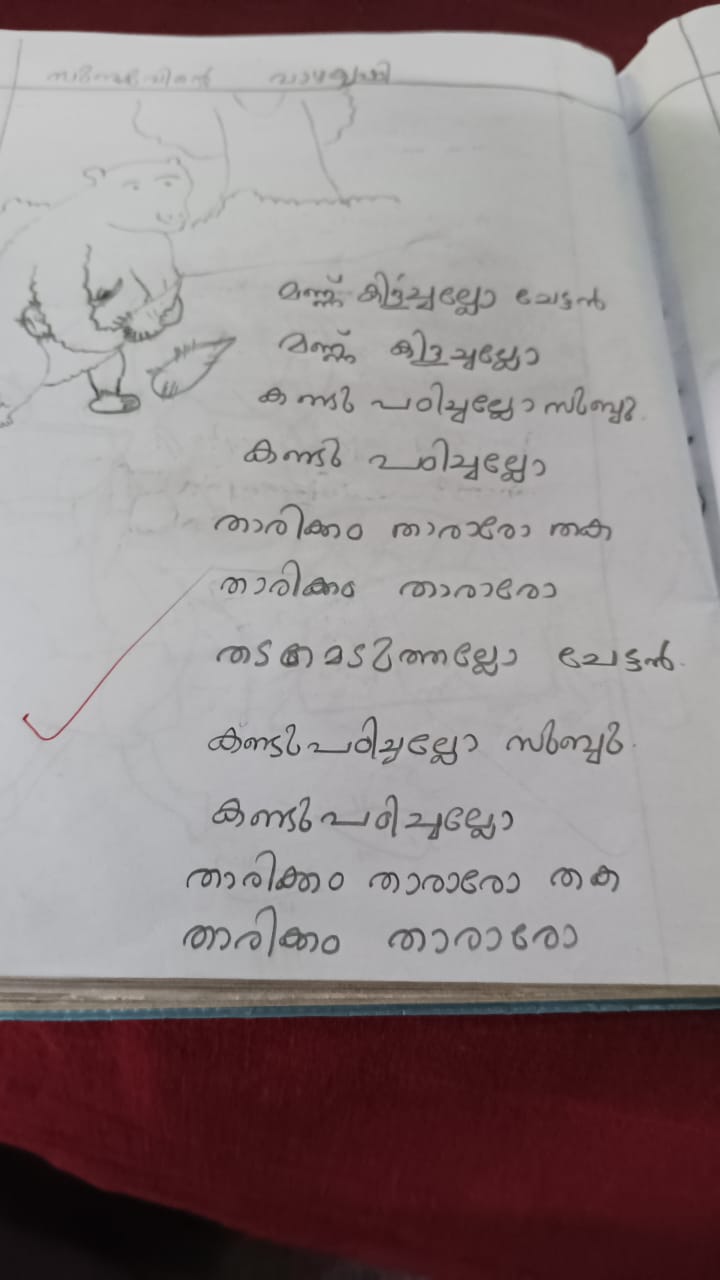 മണ്ണ് കിളച്ചല്ലോ ചേട്ടൻ
മണ്ണ് കിളച്ചല്ലോ
കണ്ടു പഠിച്ചല്ലോ സിംബു.
കണ്ടു പഠിച്ചല്ലോ
താരിക്കം താരാരോ തക
താരിക്കം താരാരോ
തടമെടുത്തല്ലോ ചേട്ടൻ.
കണ്ടുപഠിച്ചല്ലോ സിംബു.
കണ്ടുപഠിച്ചല്ലോ
താരിക്കം താരാരോ തക
താരിക്കം താരാരോ